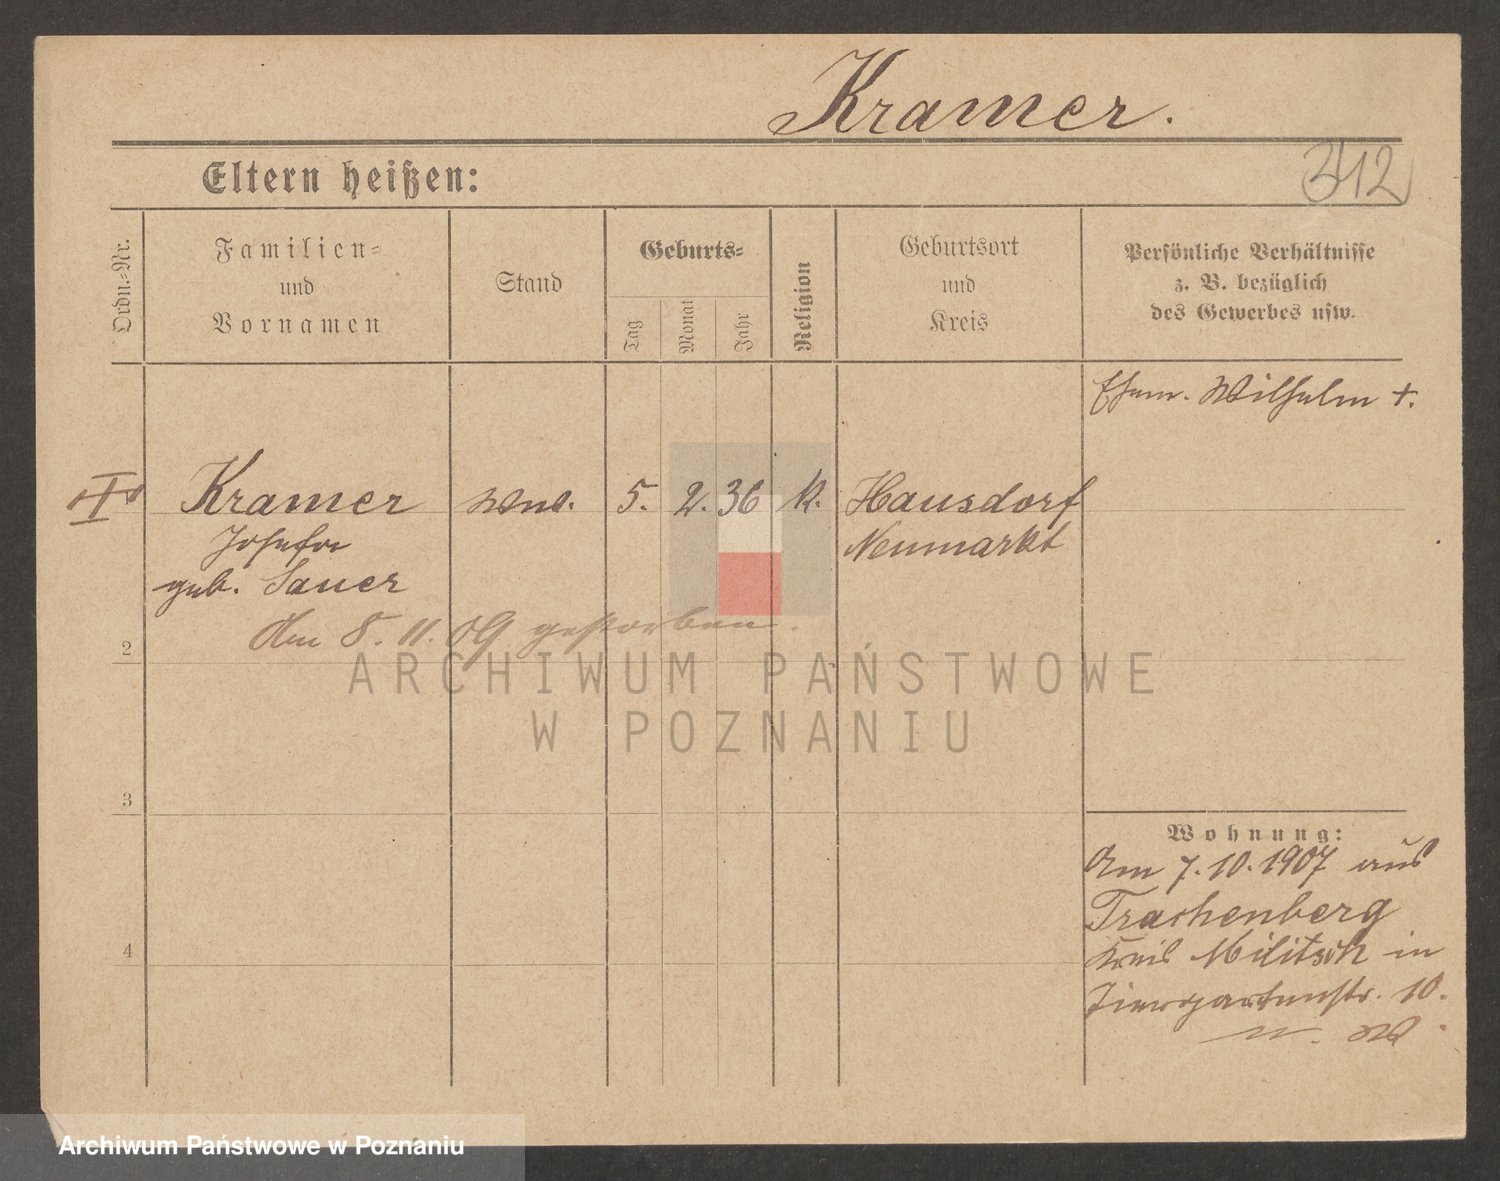 Kramer.
312
Eltern heißen:
Ordn.-Nr.
Familien-
und
Vornamen
Stand
Geburts-
Tag
Monat
Jahr
Religion
Geburtsort
und
Kreis
Persönliche Verhältnisse
z. B. bezüglich
des Gewerbes usw.
Ehem. Wilhelm +.
Kramer Wwe. 5. 2. 36 k. Hausdorf
Josefa Neumarkt
geb. Sauer
Am 8. 11. 09 gestorben.
2
3
4
Wohnung:
Am 7. 10. 1907 aus
Trachenberg
Kreis Militsch in
Tiergartenstr. 10.
ARCHIWUM PAŃSTWOWE
W POZNANIU
Archiwum Państwowe w Poznaniu